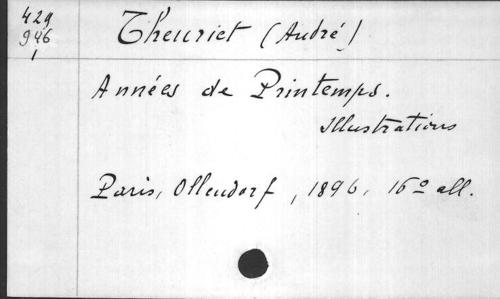 429
946
1
Theuriet (André)
Années de Printemps.
Illustrations
Paris, Ollendorf, 1896, 16º all.